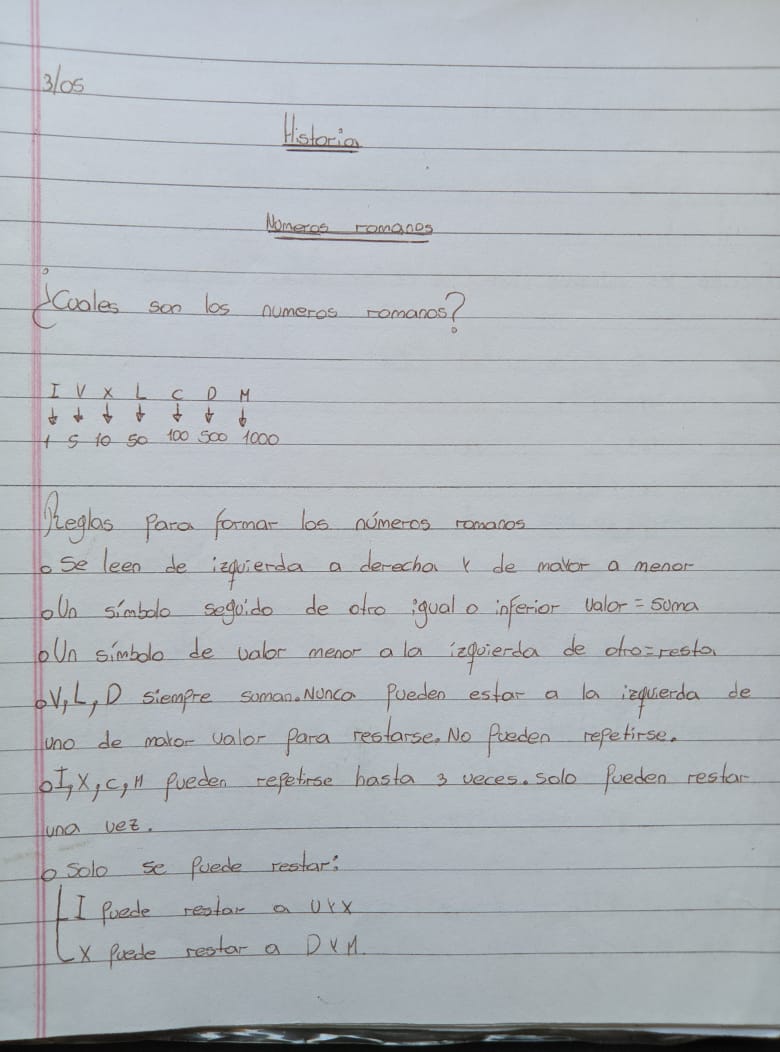 3/05
Historia
Números romanos
¿Cuales son los numeros romanos?
I V X L C D M
↓ ↓ ↓ ↓ ↓ ↓ ↓
1 5 10 50 100 500 1000
Reglas para formar los números romanos
o Se leen de izquierda a derecha y de mayor a menor
o Un símbolo seguido de otro igual o inferior valor = suma
o Un símbolo de valor menor a la izquierda de otro = resta
o V, L, D siempre suman. Nunca pueden estar a la izquierda de
uno de mayor valor para restarse. No pueden repetirse.
o I, X, C, M pueden repetirse hasta 3 veces. solo pueden restar
una vez.
o Solo se puede restar:
I puede restar a V y X
X puede restar a D y M.